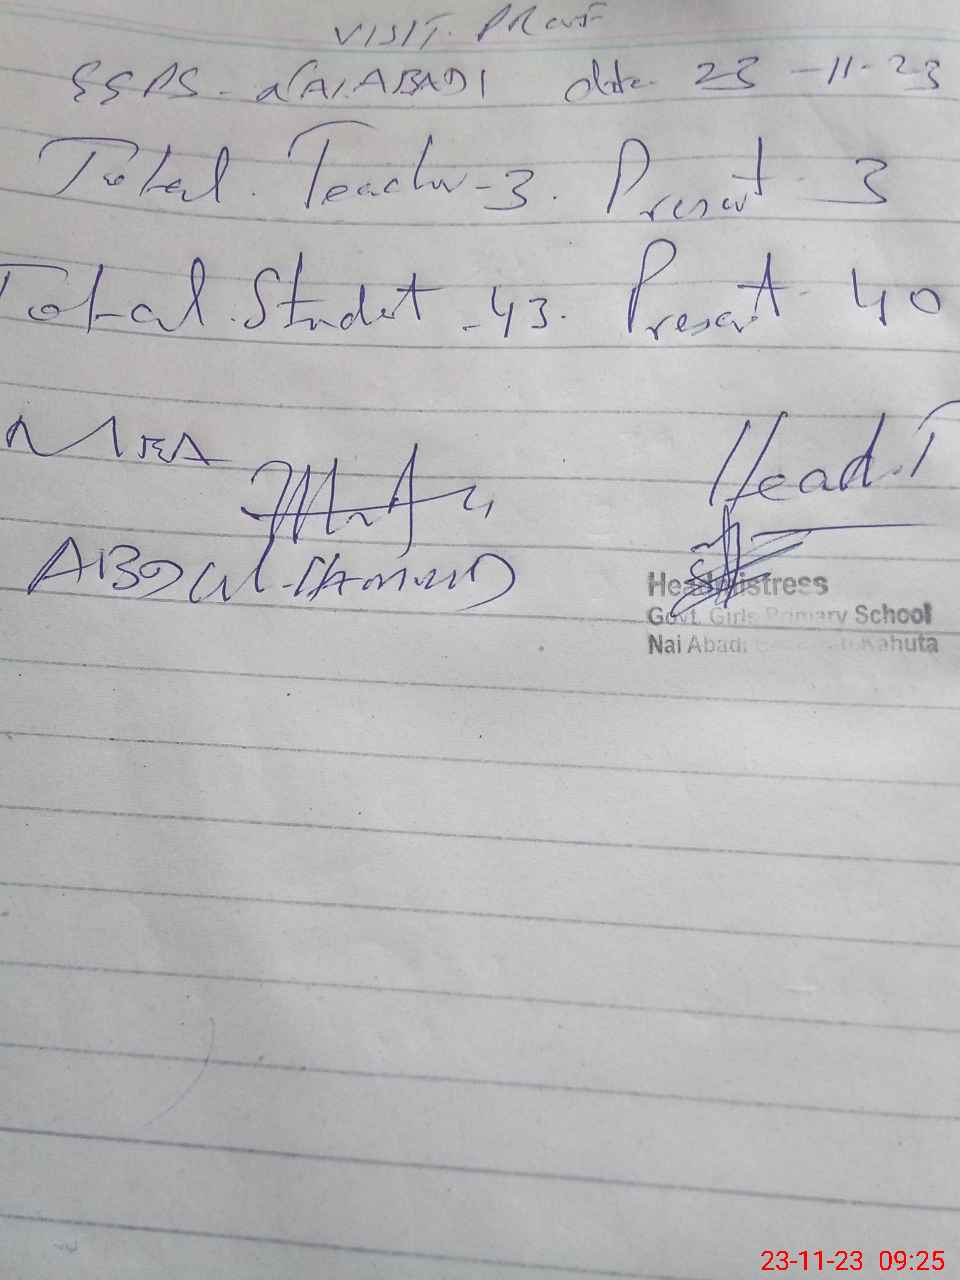 VISIT. PROof
GGPS - NAI.ABADI date 23-11-23
Total. Teacher-3. Present - 3
Total.Student -43. Present - 40
MEA
ABDUL HAMEED
Head.T
Headmistress
Govt. Girls Primary School
Nai Abadi Kahuta
23-11-23 09:25